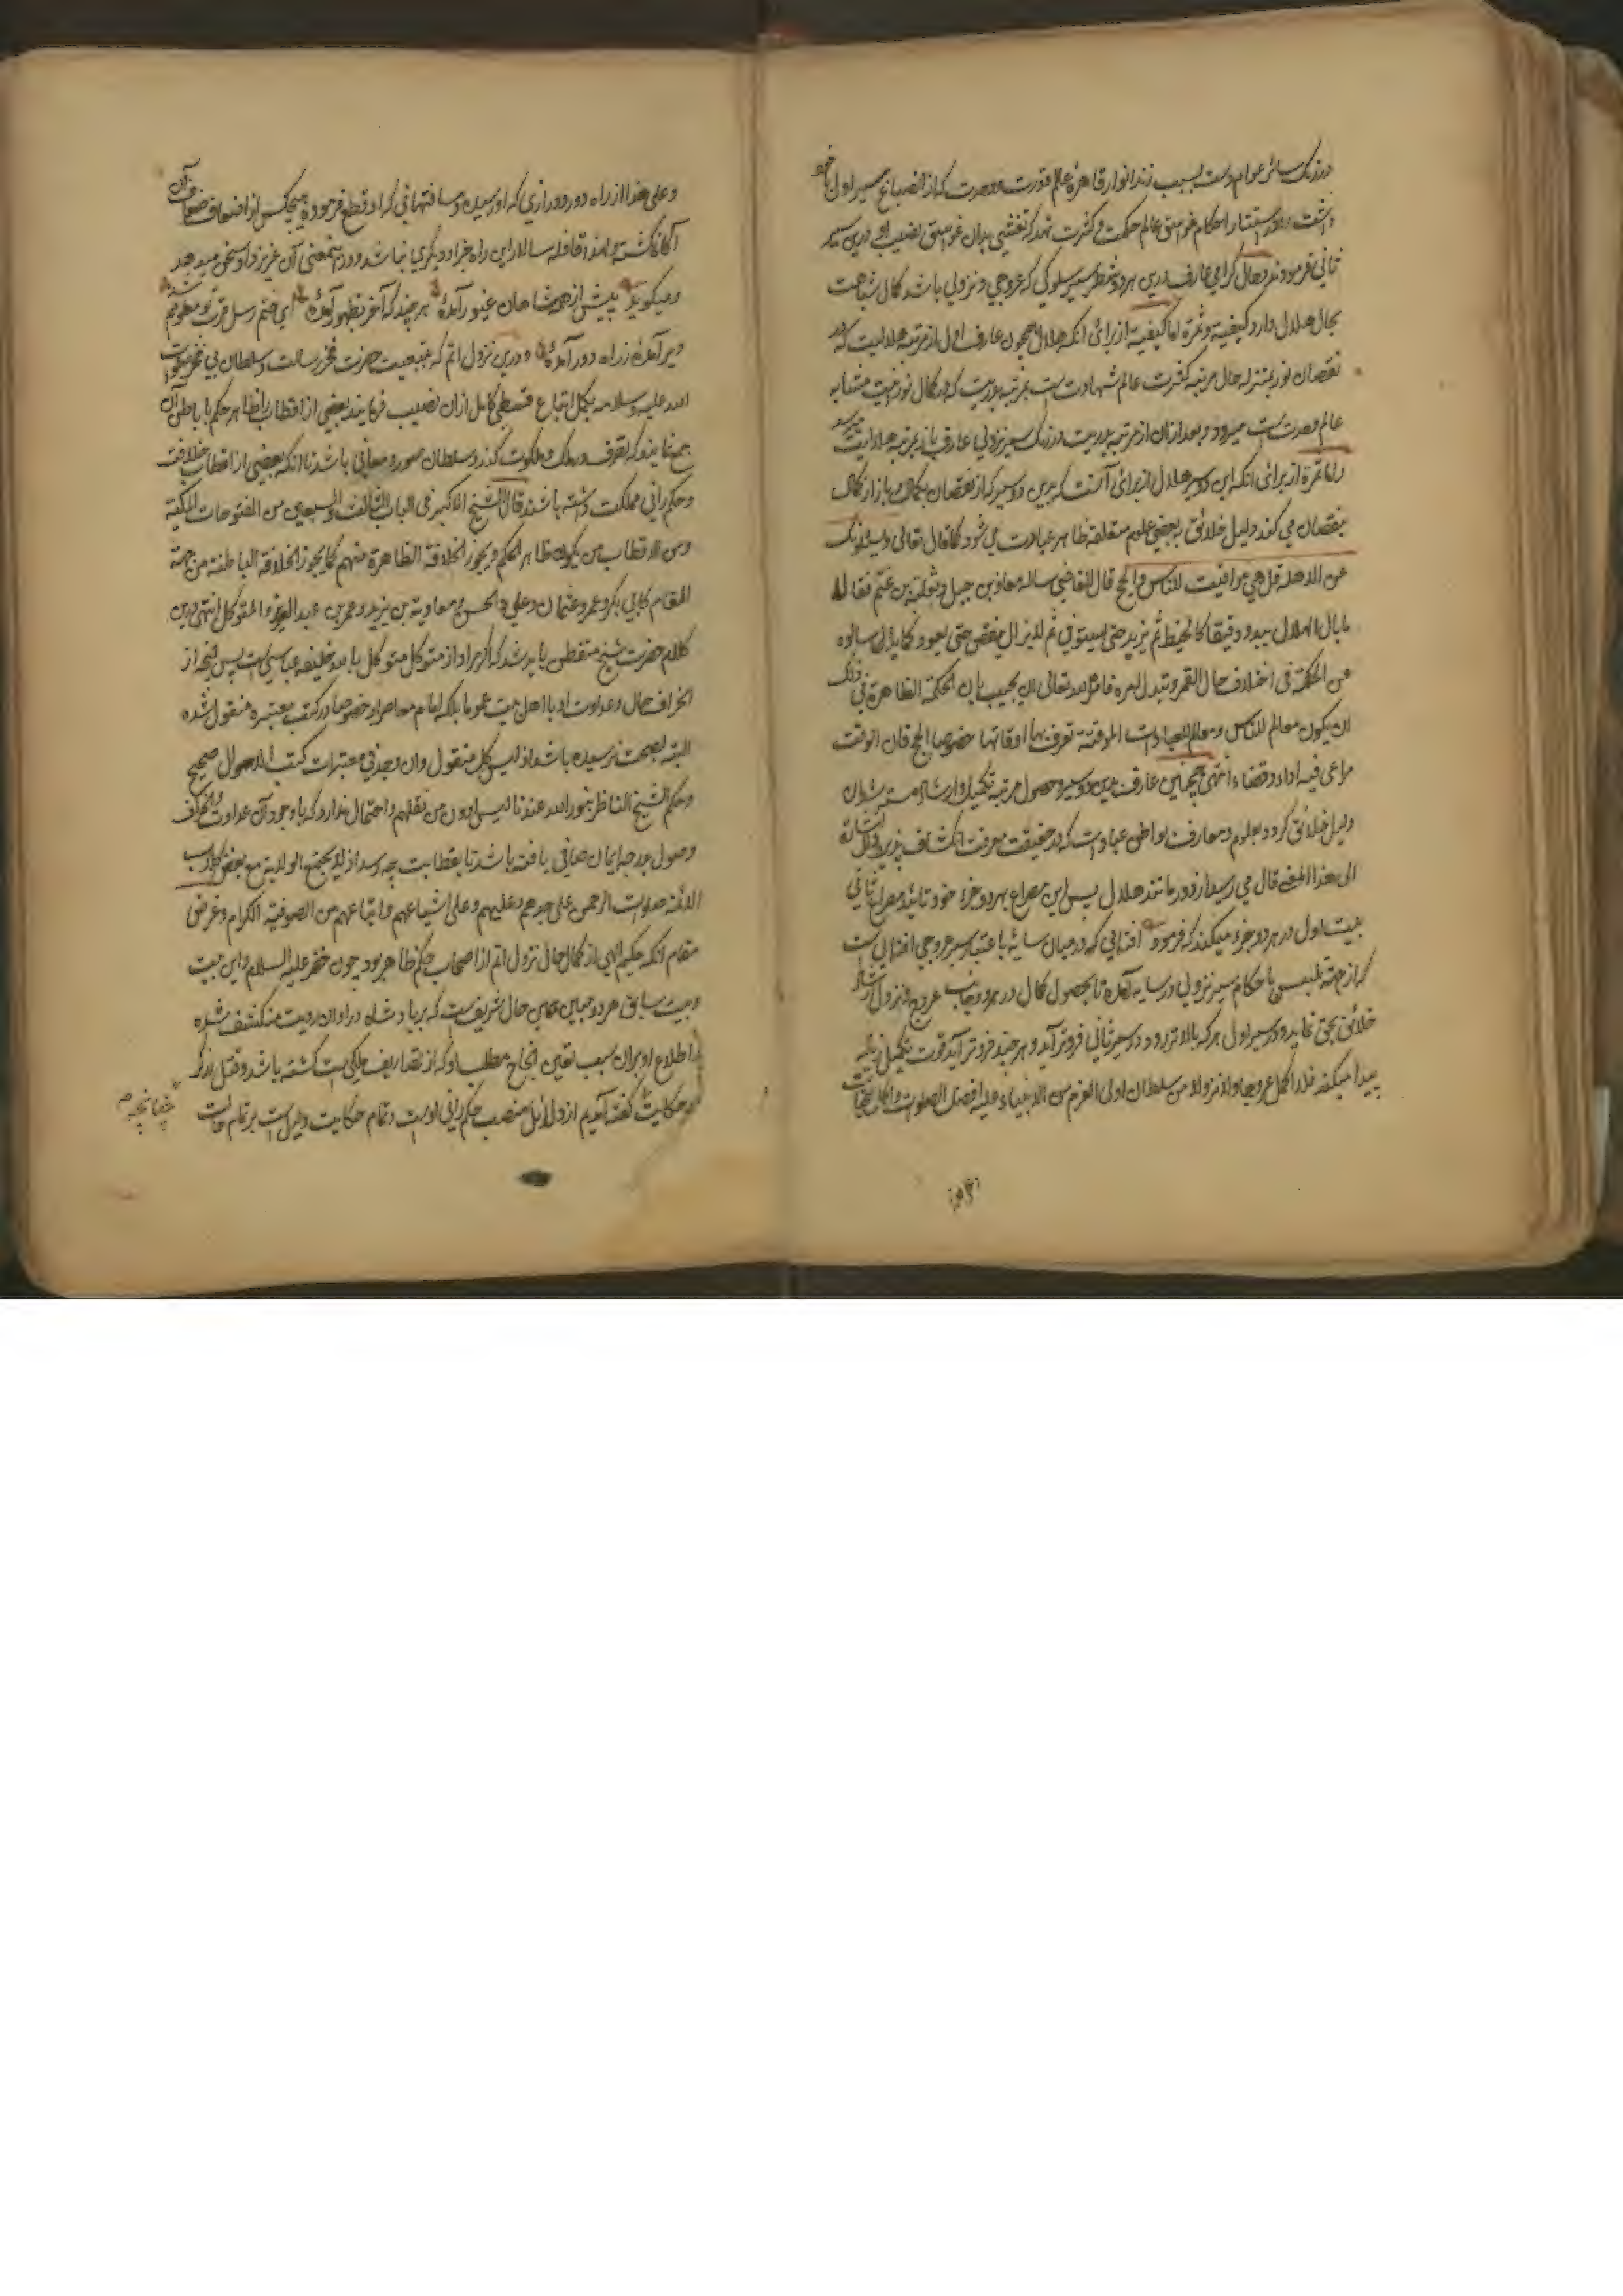 درزنک سائر عوام است بسبب زند انوار قاهرهٔ عالم قدرت و وحدت که از انصباغ سیر اول با خود
داشت و بعد استتار احکام غوامض عالم حکمت و کثرت شد که تفتیش بدان غوامض نصیب او درین سیر
ثانی فرمودند و حال کرامی عارف درین هر دو شطر سیر سلوکی که عروجی و نزولی باشد کمال شباهت
بحال هلال دارد کیفیة و ثمرة اما کیفیة از برای انکه هلال همچون عارف اول از مرتبه هلالیت که در
نقصان نور بمنزله حال مرتبه کثرت عالم شهادت است بمرتبه بدریت که در کمال نورانیت مشابه
عالم وحدت است میرود و بعد ازان از مرتبه بدریت درزنک سیر نزولی عارف باز بمرتبه هلالیت میرسد
و اما ثمرة از برای انکه این دو سیر هلال از برای آنست که بدین دو سیر که از نقصان بکمال و باز از کمال
بنقصان می کند دلیل خلائق ببعضی علوم متعلقه ظاهر عبادت می شود کما قال تعالی و یسئلونک
عن الاهلة قل هی مواقیت للناس و الحج قال القاضی ساله معاذ بن جبل و ثعلبة بن غنم فقالا
ما بال الهلال یبدو دقیقا کالخیط ثم یزید حتی یستوی ثم لایزال ینقص حتی یعود کما بدا سالوه
عن الحکمة فی اختلاف حال القمر و تبدل امره فامره الله تعالی ان یجیب بان الحکمة الظاهرة فی ذلک
ان یکون معالم للناس و معالم للعبادات الموقتة تعرف بها اوقاتها خصوصا الحج فان الوقت
مراعی فیه اداء و قضاء انتهی همچنین عارف بدین دو سیر و حصول مرتبه تکمیل و ارشاد
دلیل خلائق کردد بعلوم و معارف بواطن عبادات که در حقیقت معرفت انکشاف پذیرد
الی هذا المعنی قال می رسید از دور مانند هلال پس این مصراع بهر دو جزء خود تائید مصراع ثانی
بیت اول در هر دو جزء میکند که فرمود آفتابی که درمیان سایهٔ باعتبار سیر عروجی آفتابی است
که از جهة تلبس باحکام سیر نزولی در سایه آمده تا بحصول کمال در هر دو جانب عروج و نزول ارشاد
خلائق بحق نماید و در سیر اول هر که بالاتر رود در سیر ثانی فروتر آید و هر چند فروتر آید قوت تکمیل
پیدا میکند فلذا اکمل عروجا و لا نزولا من سلطان اولی العزم من الانبیاء علیه افضل الصلوات و اکمل التحیات
و علی هذا از راه دور و درازی که او رسیده و مسافتهائی که او قطع فرموده هیچکس از اضعاف ضعاف آن
آکاه نکشته و لهذا قافله سالار این راه جز او دیکری نباشد و در اینمعنی آن عزیز داد سخن میدهد
و میکوید پیش از همه شاهان غیور آمدهٔ هر چند که آخر بظهور آمدهٔ ای ختم رسل قرب تو معلومم شد
دیر آمدهٔ ز راه دور آمدهٔ و درین نزول اتم که بتبعیت حضرت فخر رسالت و سلطان
الله علیه و سلامه بکمل اتباع قسطی کامل ازان نصیب فرمایند بعضی از اقطاب را ظاهر حکم با باطن آن
جمع نمایند و که تصرف در ملک و ملکوت کند و سلطان صوری و معانی باشد تا انکه بعضی از اقطاب خلافت
و حکم رانی مملکت داشته باشند قال الشیخ الاکبر فی الباب الثالث و السبعین من الفتوحات المکیة
و من الاقطاب من یکون ظاهر الحکم و یحوز الخلافة الظاهرة منهم کما یحوز الخلافة الباطنة من جهة
المقام کابی بکر و عمر و عثمان و علی و الحسن و معاویة بن یزید و عمر بن عبد العزیز و المتوکل انتهی درین
کلام حضرت شیخ متفطن باید شد که اکر مراد از متوکل متوکل بالله خلیفه عباسی است پس انچه از
انحراف حال و عداوت او با اهل بیت عموما بلکه امام معاصر او خصوصا در کتب معتبره منقول شده
البته بصحت نرسیده باشد اذ لیس کل منقول و ان وجد فی معتبرات کتب الاصول صحیح
و حکم الشیخ الناظر بنور الله عندنا لیس ادون من نقلهم و احتمال ندارد که باوجود آن عداوت و انحراف
وصول بدرجه ایمان صافی یافته باشد تا بقطابیت چه رسد اذ لا یجتمع الولایة مع بغض
الائمة صلوات الرحمن علی جدهم و علیهم و علی اشیاعهم و اتباعهم من الصوفیة الکرام و غرض
مقام انکه حکیم الهی از کمال حال نزول اتم از اصحاب حکم ظاهر بود چون خضر علیه السلام و این بیت
و بیت سابق هر دو مباین همین حال شریفست که بر پادشاه در اوان رویت منکشف شده
و اطلاع او بران سبب یقین انجاح مطلب او که از تصاریف ملکی است کشته باشد و قتل زرکر
در حکایت کفته آمدیم از دلائل منصب حکم رانی اوست و تمام حکایت دلیل است بر تمام حالت
چنانچه